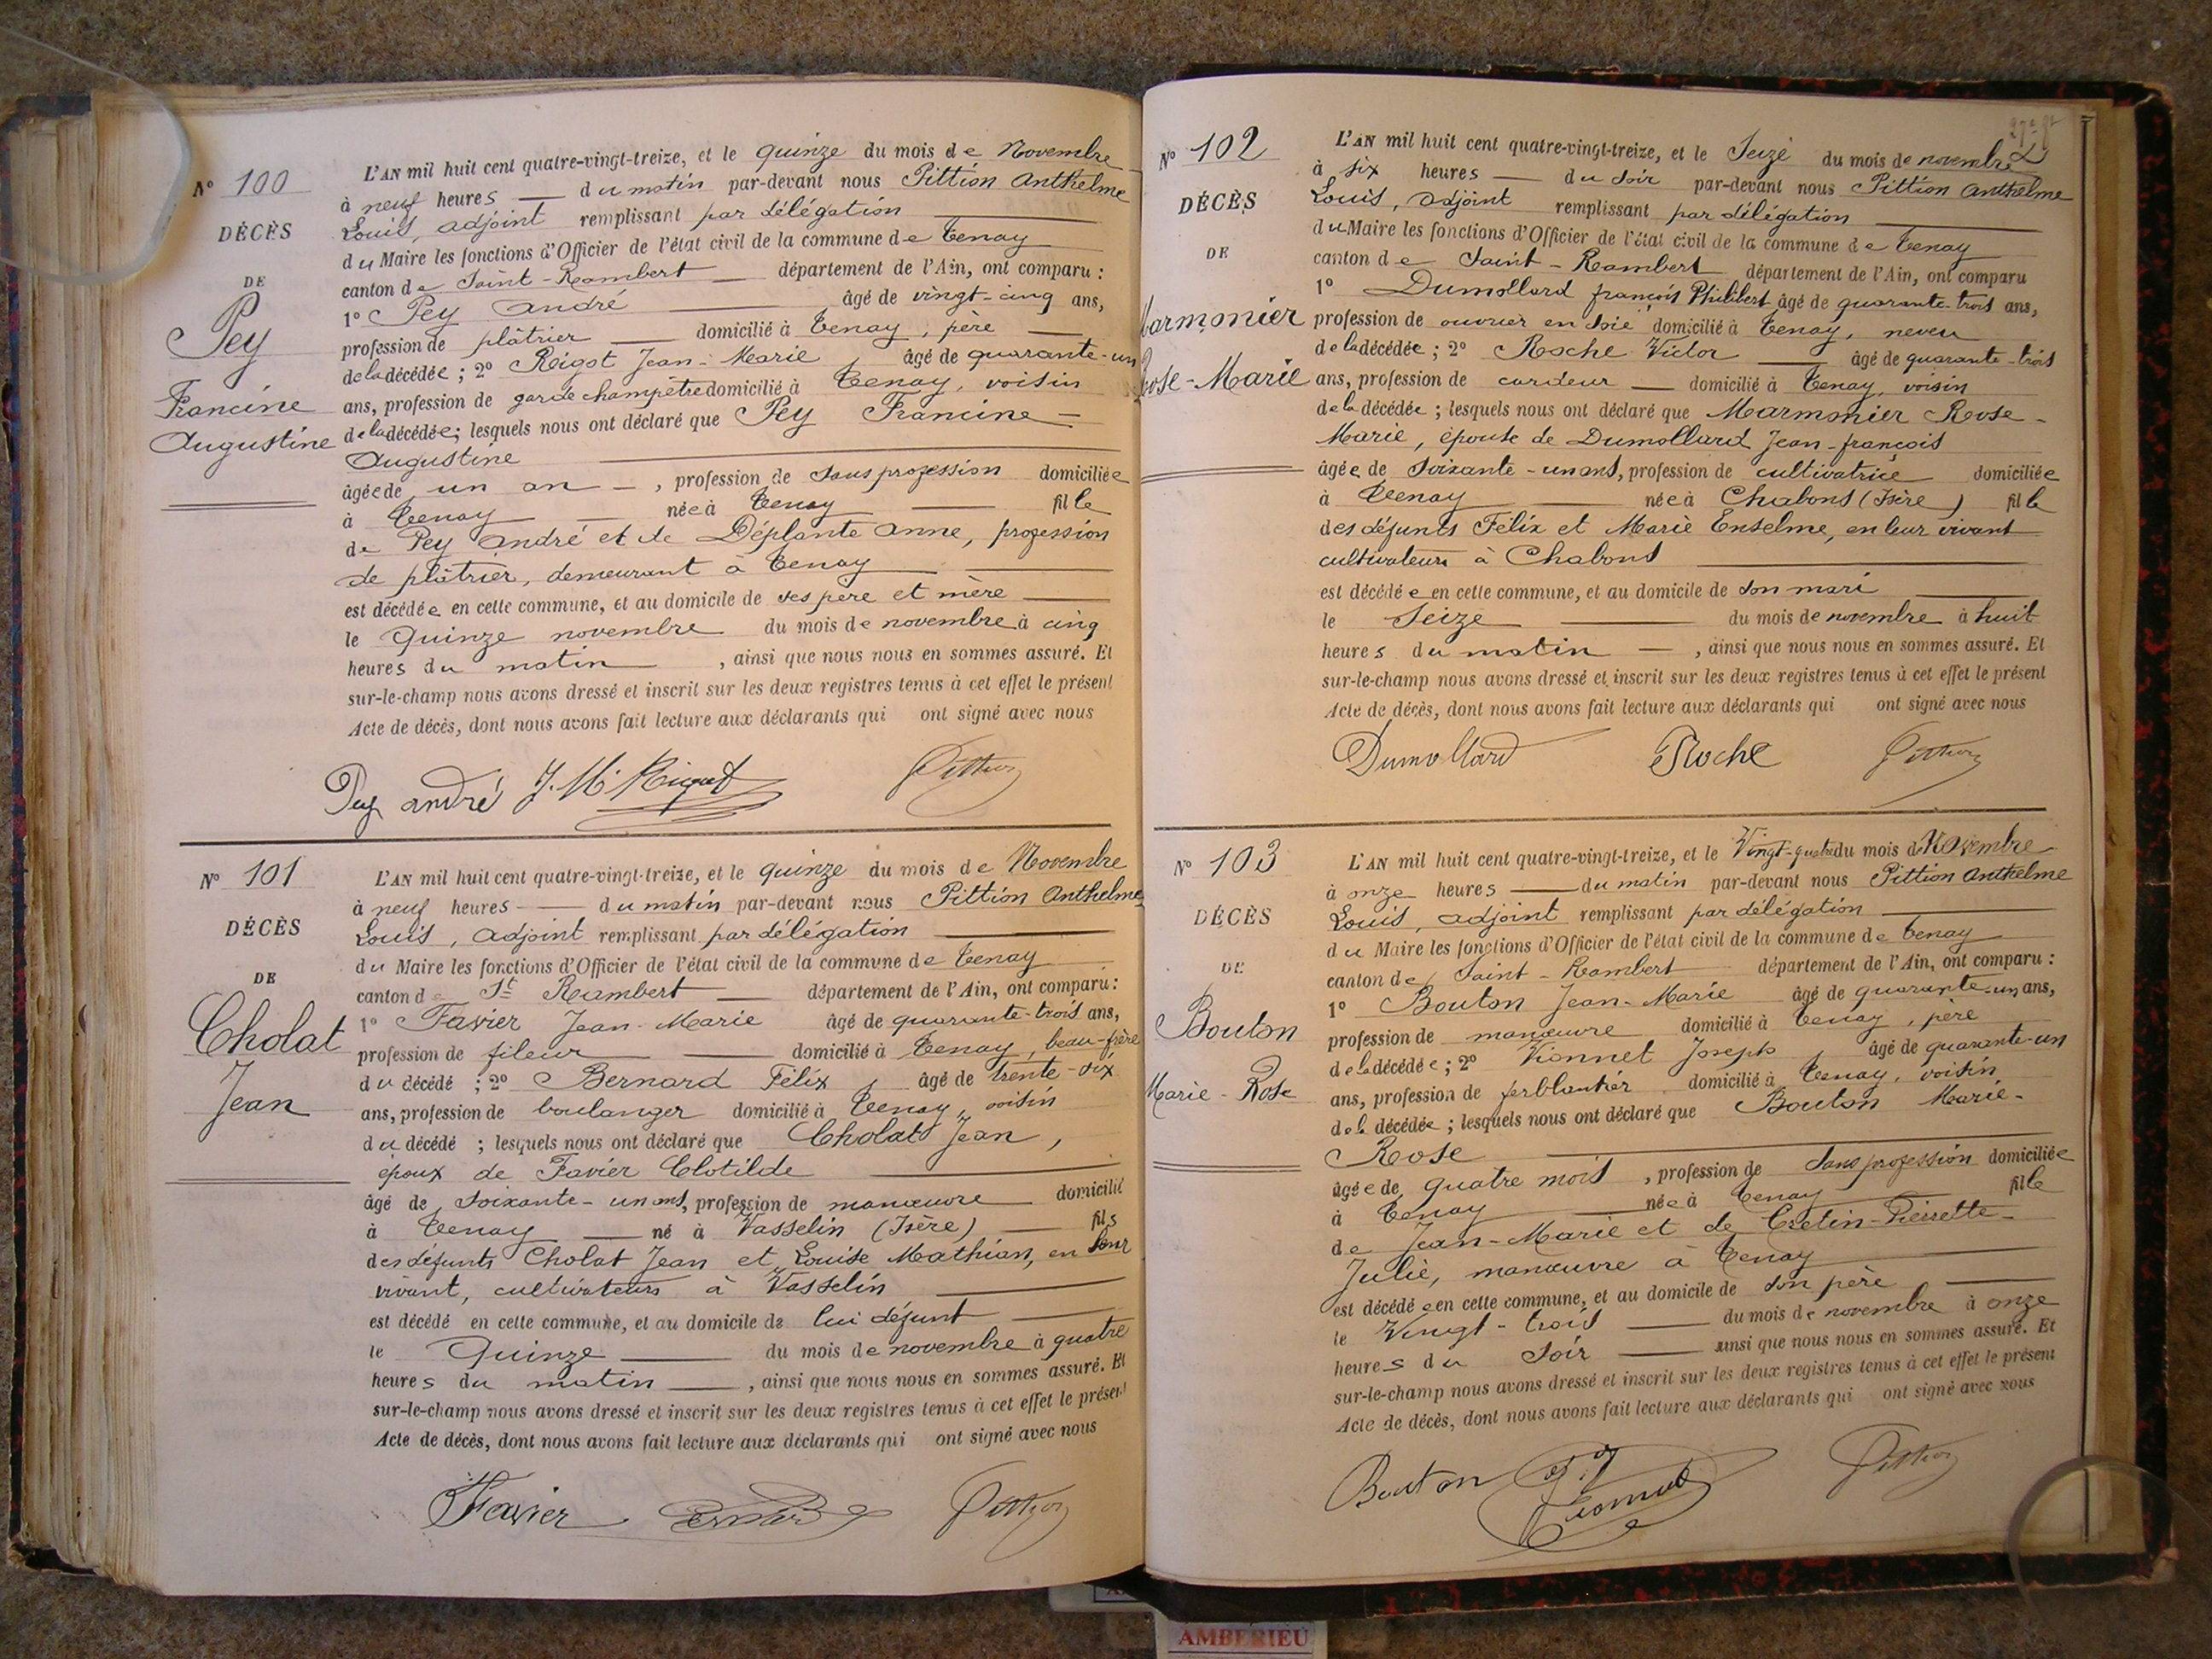 N° 100
DÉCÈS
DE
Pey
Francine
Augustine
L'AN mil huit cent quatre-vingt-treize, et le quinze du mois de Novembre
à neuf heures — du matin par-devant nous Pittion Anthelme
Louis, adjoint remplissant par délégation
du Maire les fonctions d'Officier de l'état civil de la commune de Tenay
canton de Saint-Rambert — département de l'Ain, ont comparu :
1° Pey André âgé de vingt-cinq ans,
profession de plâtrier — domicilié à Tenay, père —
de la décédée ; 2° Rigot Jean-Marie, âgé de quarante-un
ans, profession de garde champêtre domicilié à Tenay, voisin
de la décédée ; lesquels nous ont déclaré que Pey Francine —
Augustine
âgée de un an —, profession de sans profession domiciliée
à Tenay — née à Tenay — fille
de Pey André et de Déplante Anne, profession
de plâtrier, demeurant à Tenay
est décédée en cette commune, et au domicile de ses père et mère
le Quinze novembre du mois de novembre à cinq
heures du matin , ainsi que nous nous en sommes assuré. Et
sur-le-champ nous avons dressé et inscrit sur les deux registres tenus à cet effet le présent
Acte de décès, dont nous avons fait lecture aux déclarants qui ont signé avec nous
Pey andré J. M. Rigot Pittion
N° 101
DÉCÈS
DE
Cholat
Jean
L'AN mil huit cent quatre-vingt-treize, et le quinze du mois de Novembre
à neuf heures — du matin par-devant nous Pittion Anthelme
Louis, adjoint remplissant par délégation
du Maire les fonctions d'Officier de l'état civil de la commune de Tenay
canton de St Rambert — département de l'Ain, ont comparu :
1° Favier Jean-Marie âgé de quarante-trois ans,
profession de fileur — domicilié à Tenay, beau-frère
du décédé ; 2° Bernard Félix, âgé de trente-six
ans, profession de boulanger domicilié à Tenay, voisin
du décédé ; lesquels nous ont déclaré que Cholat Jean,
époux de Favier Clotilde
âgé de soixante-un ans, profession de manœuvre domicilié
à Tenay — né à Vasselin (Isère) — fils
des défunts Cholat Jean et Louise Mathian, en leur
vivant, cultivateurs à Vasselin
est décédé en cette commune, et au domicile de lui défunt
le Quinze — du mois de novembre à quatre
heures du matin —, ainsi que nous nous en sommes assuré. Et
sur-le-champ nous avons dressé et inscrit sur les deux registres tenus à cet effet le présent
Acte de décès, dont nous avons fait lecture aux déclarants qui ont signé avec nous
Favier Bernard Pittion
N° 102
DÉCÈS
DE
Marmonier
Rose-Marie
L'AN mil huit cent quatre-vingt-treize, et le Seize du mois de novembre
à six heures — du soir par-devant nous Pittion Anthelme
Louis, adjoint remplissant par délégation
du Maire les fonctions d'Officier de l'état civil de la commune de Tenay
canton de Saint-Rambert département de l'Ain, ont comparu
1° Dumollard françois Philibert âgé de quarante-trois ans,
profession de ouvrier en soie domicilié à Tenay, neveu
de la décédée ; 2° Roche Victor — âgé de quarante-trois
ans, profession de cardeur — domicilié à Tenay, voisin
de la décédée ; lesquels nous ont déclaré que Marmonier Rose-
Marie, épouse de Dumollard Jean-françois
âgée de soixante-un ans, profession de cultivatrice domiciliée
à Tenay — née à Chabons (Isère) fille
des défunts Félix et Marie Enselme, en leur vivant
cultivateurs à Chabons
est décédée en cette commune, et au domicile de son mari
le Seize — du mois de novembre à huit
heures du matin —, ainsi que nous nous en sommes assuré. Et
sur-le-champ nous avons dressé et inscrit sur les deux registres tenus à cet effet le présent
Acte de décès, dont nous avons fait lecture aux déclarants qui ont signé avec nous
Dumollard Roche Pittion
N° 103
DÉCÈS
DE
Bouton
Marie-Rose
L'AN mil huit cent quatre-vingt-treize, et le Vingt-quatre du mois de Novembre
à onze heures — du matin par-devant nous Pittion Anthelme
Louis, adjoint remplissant par délégation
du Maire les fonctions d'Officier de l'état civil de la commune de Tenay
canton de Saint-Rambert département de l'Ain, ont comparu :
1° Bouton Jean-Marie âgé de quarante-un ans,
profession de manœuvre domicilié à Tenay, père
de la décédée ; 2° Vionnet Joseph, âgé de quarante-un
ans, profession de ferblantier domicilié à Tenay, voisin
de la décédée ; lesquels nous ont déclaré que Bouton Marie-
Rose
âgée de quatre mois, profession de sans profession domiciliée
à Tenay — née à Tenay fille
de Jean-Marie et de Cretin-Pierrette-
Julie, manœuvre à Tenay
est décédée en cette commune, et au domicile de son père
le Vingt-trois — du mois de novembre à onze
heures du soir — ainsi que nous nous en sommes assuré. Et
sur-le-champ nous avons dressé et inscrit sur les deux registres tenus à cet effet le présent
Acte de décès, dont nous avons fait lecture aux déclarants qui ont signé avec nous
Bouton Vionnet Pittion
AMBERIEU